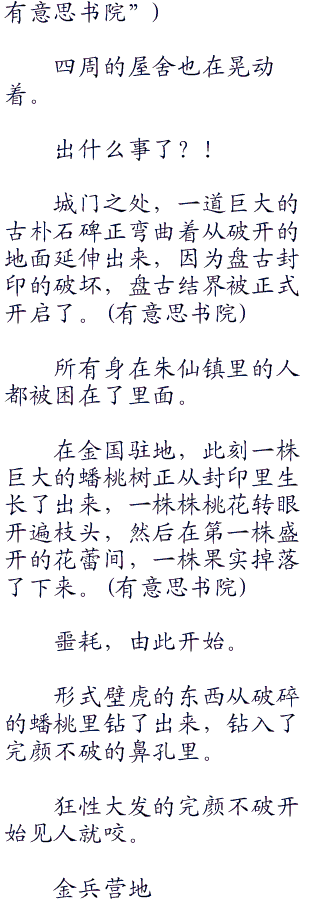 有意思书院”)
四周的屋舍也在晃动
着。
出什么事了？！
城门之处，一道巨大的
古朴石碑正弯曲着从破开的
地面延伸出来，因为盘古封
印的破坏，盘古结界被正式
开启了。(有意思书院)
所有身在朱仙镇里的人
都被困在了里面。
在金国驻地，此刻一株
巨大的蟠桃树正从封印里生
长了出来，一株株桃花转眼
开遍枝头，然后在第一株盛
开的花蕾间，一株果实掉落
了下来。(有意思书院)
噩耗，由此开始。
形式壁虎的东西从破碎
的蟠桃里钻了出来，钻入了
完颜不破的鼻孔里。
狂性大发的完颜不破开
始见人就咬。
金兵营地